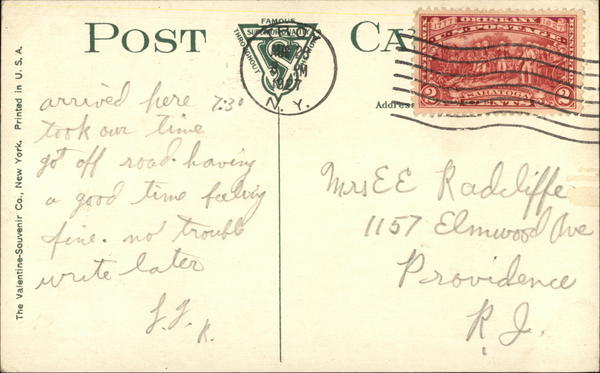 POST CA
FAMOUS
THROUGHOUT
N. Y.
1927
ORISKANY
U.S. POSTAGE
SARATOGA
2 CENTS 2
Address
The Valentine-Souvenir Co., New York. Printed in U. S. A.
arrived here 7:30
took our time
got off road. having
a good time feeling
fine. no trouble
write later
Mrs E E Radcliffe
1157 Elmwood Ave
Providence
R I.